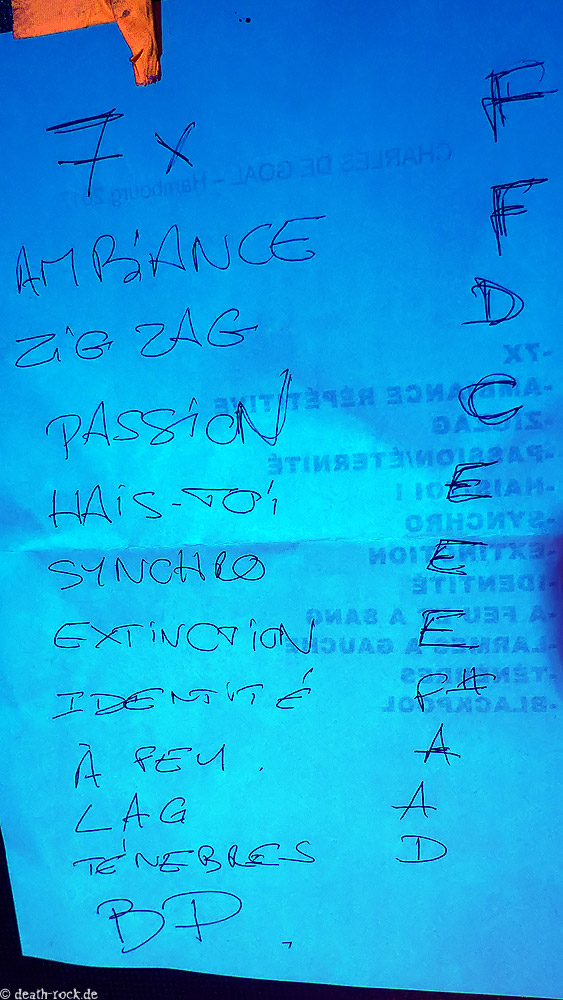 7x F
AMBiANCE F
ZiG ZAG D
PASSiON C
HAiS-TOi E
SYNCHRO E
EXTiNCTiON E
IDENTiTÉ F#
À FEU. A
LAG A
TÉNEBRES D
BP.
CHARLES DE GOAL - Hambourg 2017
-7X
-AMBIANCE RÉPÉTITIVE
-ZIGZAG
-PASSION/ÉTERNITÉ
-HAIS-TOI !
-SYNCHRO
-EXTINCTION
-IDENTITÉ
-A FEU - A SANG
-LARMES A GAUCHE
-TÉNÈBRES
-BLACKPOOL
© death-rock.de